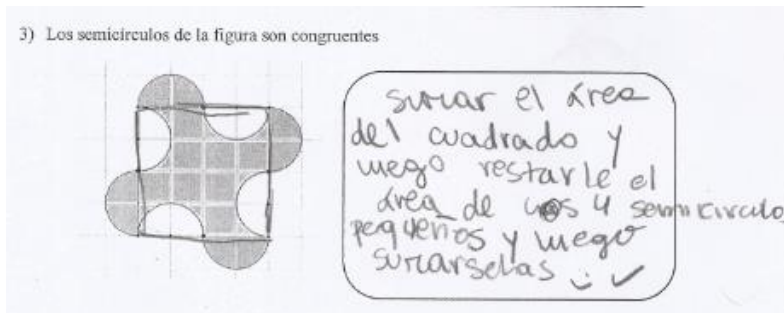 3) Los semicírculos de la figura son congruentes
sumar el área
del cuadrado y
luego restarle el
área de los 4 semicirculos
pequeños y luego
sumarselas